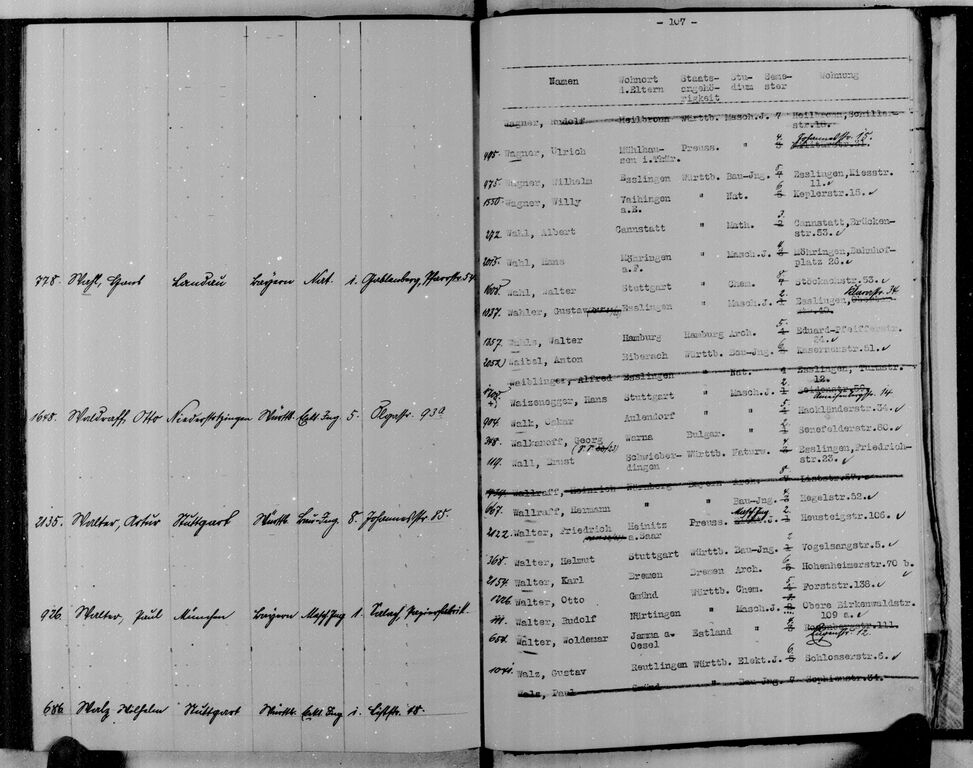 778. Landau Bayern Mat. i. Gablenberg, Pfarrstr. 54
1648. Waldraff, Otto Niederstotzingen Württ. Elkt. Ing 5. Olgastr. 93a
2135. Walter, Artur Stuttgart Württ. Bau-Ing 8. Johannesstr. 85.
926. Walter, Paul München Bayern Masch Ing 1. Papierfabrik
686. Walz Wilhelm Stuttgart Württ. Elkt. Ing i. 18.
- 107 -
Namen Wohnort d.Eltern Staats-angehö-rigkeit Stu-dium Seme-ster Wohnung
Wagner, Rudolf Heilbronn Württb. Masch.J. 7 Heilbronn, Schiller-
str.18.
495. Wagner, Ulrich Mühlhau- Preuss. " 4. Johannesstr. 15.
sen i.Thür.
975. Wagner, Wilhelm Esslingen Württb. Bau-Jng. 5 Esslingen, Kiesstr.
11.
1550. Wagner, Willy Vaihingen " Nat. 6 Keplerstr.18.
a.E.
272. Wahl, Albert Cannstatt " Math. 3. Cannstatt, Brücken-
str.53.
2015. Wahl, Hans Möhringen " Masch.J. Möhringen, Bahnhof-
a.F. platz 26.
Wahl, Walter Stuttgart " Chem. Stöckachstr.53.
1037. Wahler, Gustav Esslingen " Masch.J. 2 Esslingen, 34
1857. Wahls, Walter Hamburg Hamburg Arch. 5. Eduard-Pfeifferstr.
24.
2052. Waibel, Anton Biberach Württb. Bau-Jng. 6 Kasernenstr.51.
Waiblinger, Alfred Esslingen " Nat. Esslingen, Turmstr.
12.
Waizenegger, Hans Stuttgart " Masch.J. 2. 14
904. Walk, Oskar Aulendorf " " Hackländerstr.34.
248. Walkanoff, Georg Warna Bulgar. " 2. Senefelderstr.80.
117. Wall, Ernst Schwieber- Württb. Naturw. Esslingen, Friedrich-
dingen str.23.
Wallraff, Heinrich Nürnberg Bayern 8. Liststr.
667. Wallraff, Hermann " " Bau-Jng. Hegelstr.52.
2122. Walter, Friedrich Heinitz Preuss. Masch Ing 2 Neusteigstr.106.
a.Saar
368. Walter, Helmut Stuttgart Württb. Bau-Jng. 2 Vogelsangstr.5.
2154. Walter, Karl Bremen Bremen Arch. 6 Hohenheimerstr.70 b.
1226. Walter, Otto Gmünd Württb. Chem. 5 Forststr.138.
Walter, Rudolf Nürtingen " Masch.J. Obere Birkenwaldstr.
109 a.
654. Walter, Woldemar Jamma a. Estland " Eugenstr. 12.
Oesel
1041. Walz, Gustav Reutlingen Württb. Elekt.J. 6 Schlosserstr.6.
Walz, Paul Gmünd " Bau-Jng. 7 Sophienstr.34.